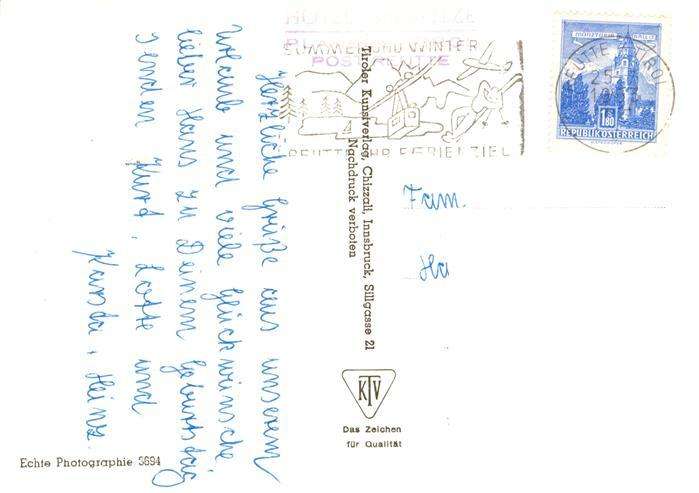 Herzliche Grüße aus unserem
Urlaub und viele Glückwünsche
lieber Hans zu Deinem Geburtstag
senden Kurt, Lotte und
Heinz.
SOMMER UND WINTER
POST REUTTE
REUTTE IHR FERIENZIEL
REUTTE TIROL
25
1.80
REPUBLIK ÖSTERREICH
Tiroler Kunstverlag, Chizzali, Innsbruck, Sillgasse 21
Nachdruck verboten
Fam.
Ha
KTV
Das Zeichen
für Qualität
Echte Photographie 3694